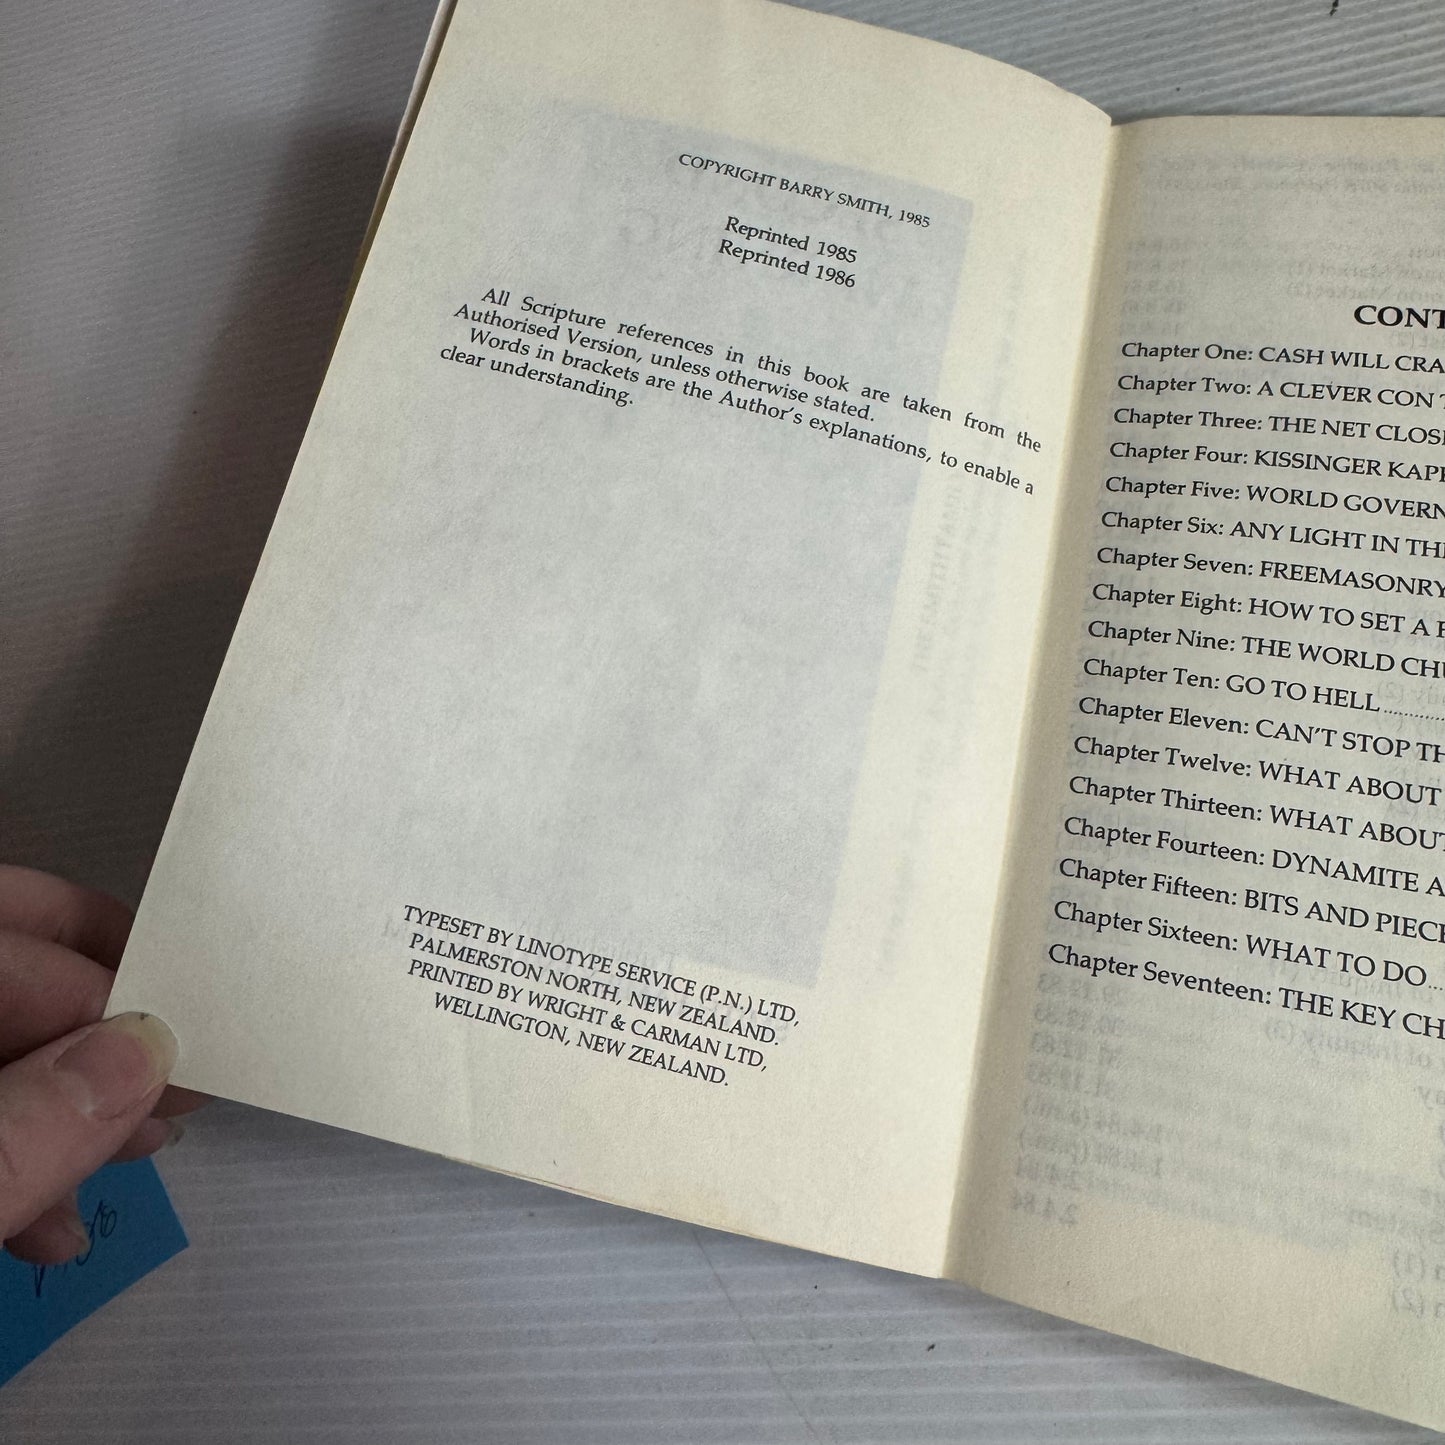 COPYRIGHT BARRY SMITH, 1985
Reprinted 1985
Reprinted 1986
All Scripture references in this book are taken from the
Authorised Version, unless otherwise stated.
Words in brackets are the Author's explanations, to enable a
clear understanding.
TYPESET BY LINOTYPE SERVICE (P.N.) LTD,
PALMERSTON NORTH, NEW ZEALAND.
PRINTED BY WRIGHT & CARMAN LTD,
WELLINGTON, NEW ZEALAND.
CONT
Chapter One: CASH WILL CRA
Chapter Two: A CLEVER CON
Chapter Three: THE NET CLOSE
Chapter Four: KISSINGER KAP
Chapter Five: WORLD GOVERN
Chapter Six: ANY LIGHT IN TH
Chapter Seven: FREEMASONRY
Chapter Eight: HOW TO SET A
Chapter Nine: THE WORLD CHU
Chapter Ten: GO TO HELL
Chapter Eleven: CAN'T STOP TH
Chapter Twelve: WHAT ABOUT
Chapter Thirteen: WHAT ABOUT
Chapter Fourteen: DYNAMITE A
Chapter Fifteen: BITS AND PIECE
Chapter Sixteen: WHAT TO DO
Chapter Seventeen: THE KEY CH